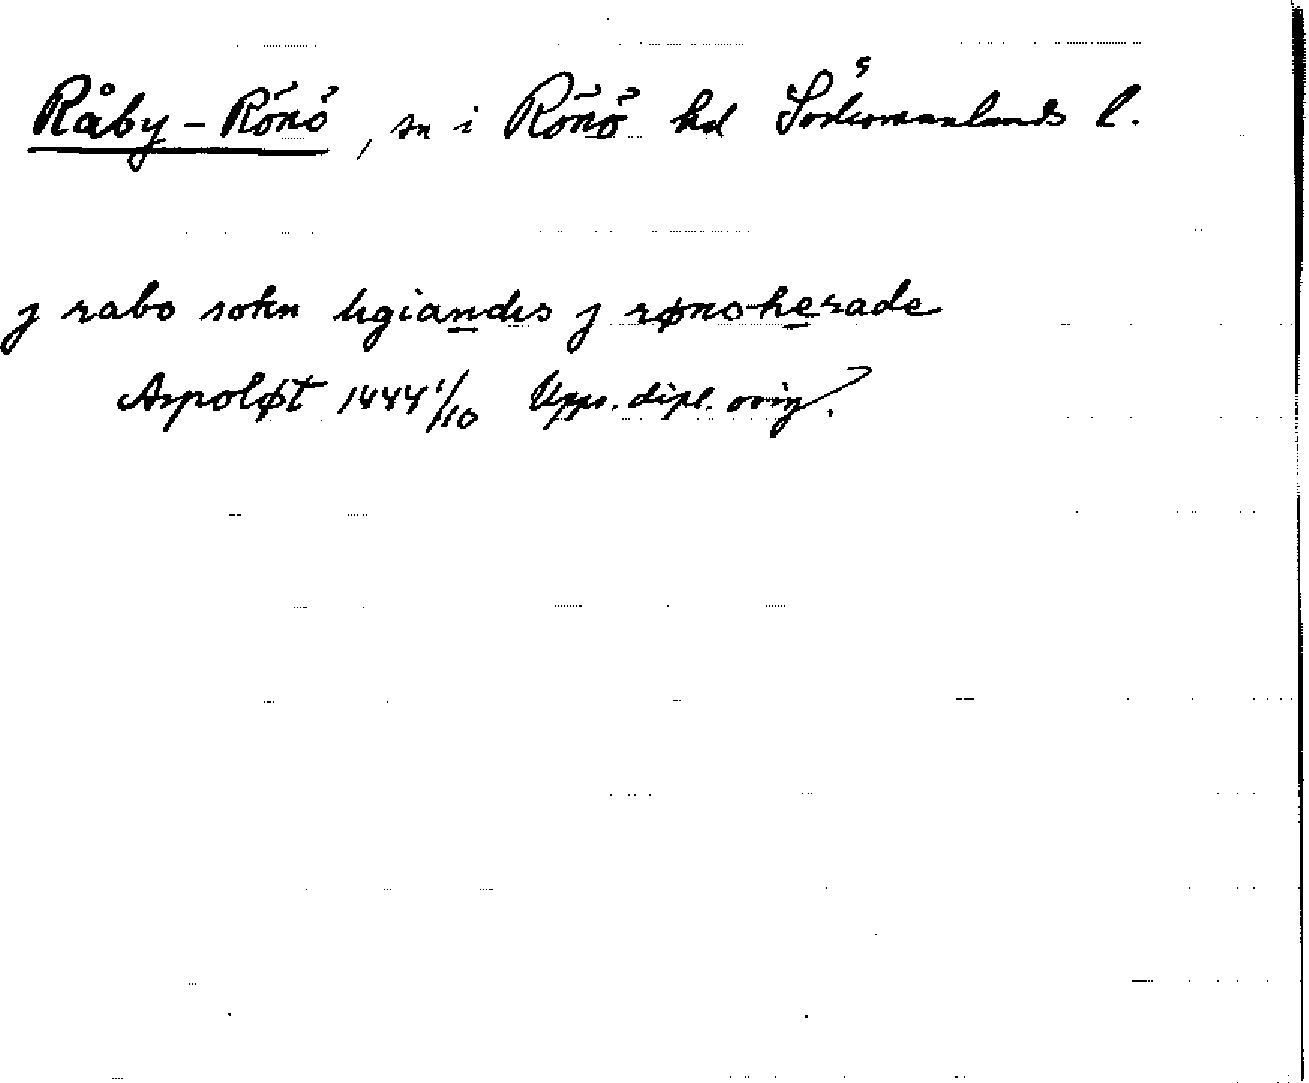 Råby-Rönö, sn i Rönö hd Södermanlands l.
j rabo sokn ligiandes j rønoherade
Aspoløt 1444 1/10 Upps. dipl. orig.